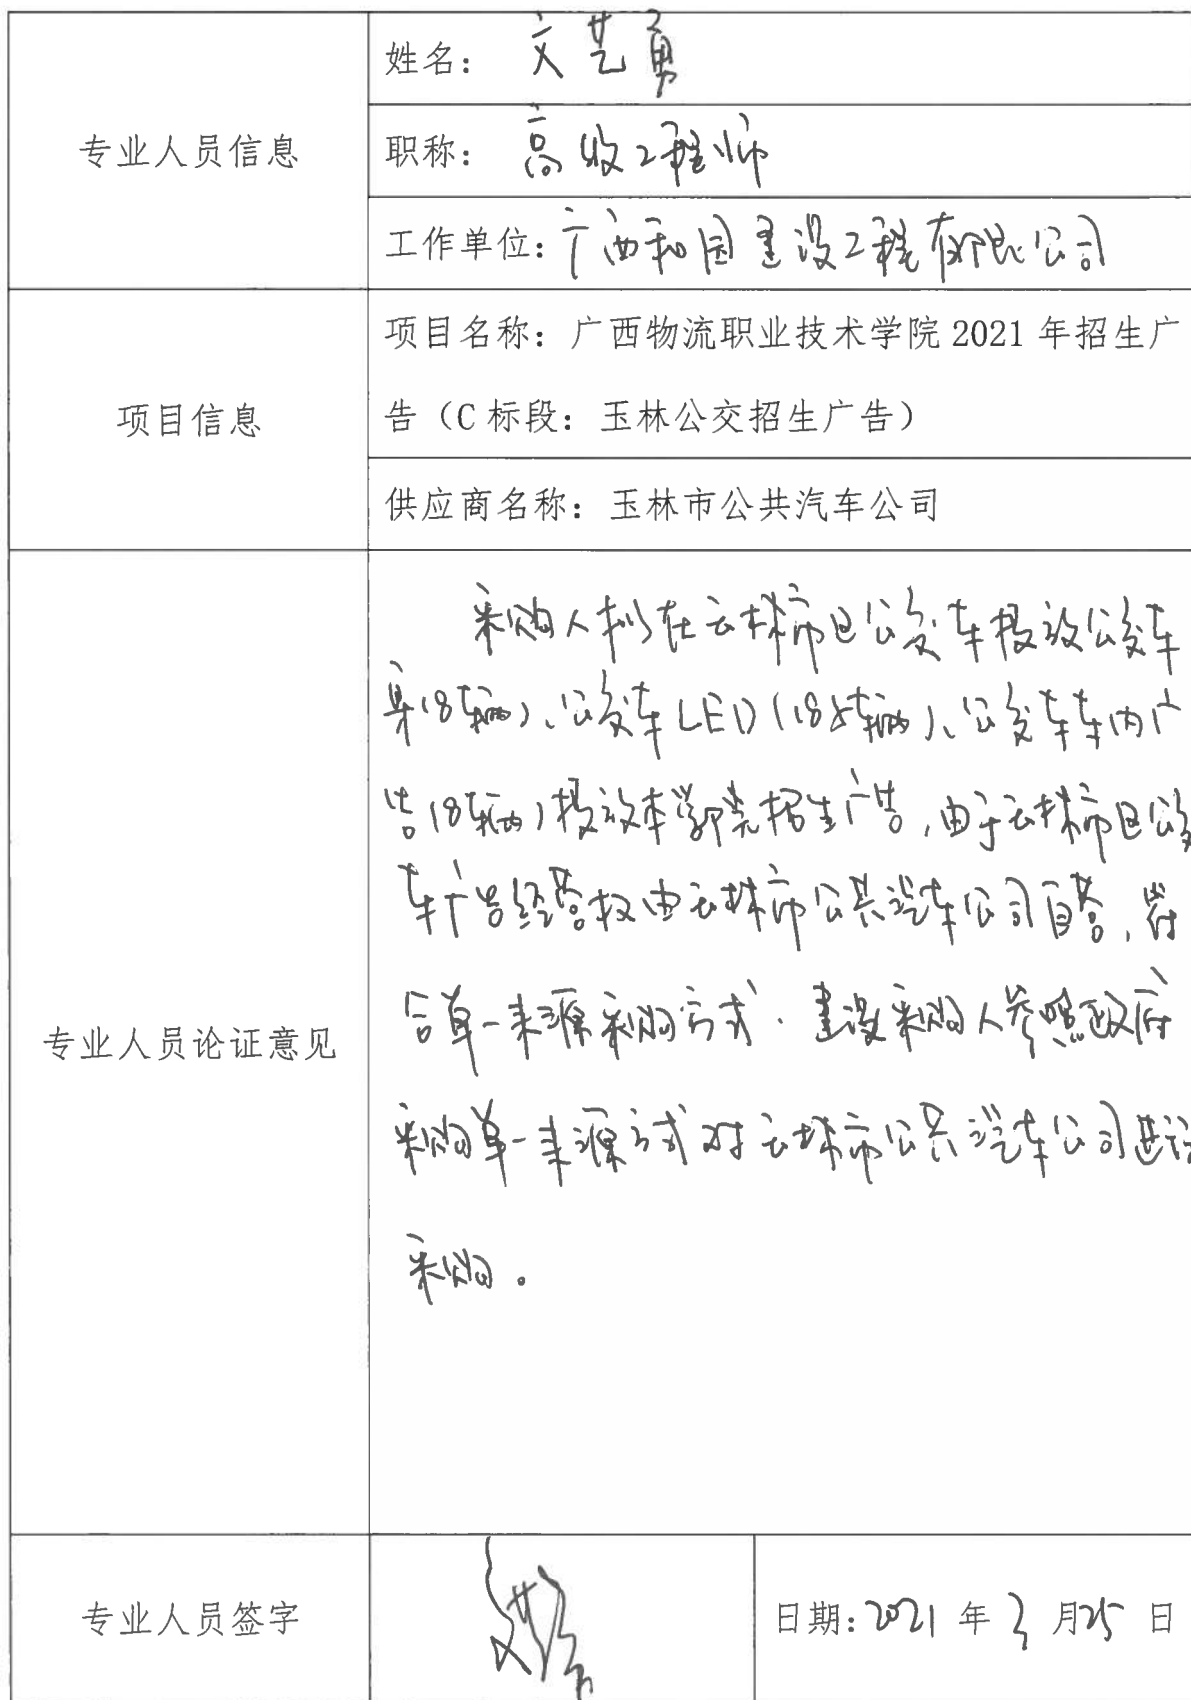 专业人员信息
姓名：文艺勇
职称：高级工程师
工作单位：广西和国建设工程有限公司
项目信息
项目名称：广西物流职业技术学院 2021 年招生广
告（C 标段：玉林公交招生广告）
供应商名称：玉林市公共汽车公司
专业人员论证意见
采购人拟在玉林市区公交车投放公交车
身(8车辆)、公交车LED(185车辆)、公交车车内广
告(8车辆)投放本学院招生广告,由于玉林市区公交
车广告经营权由玉林市公共汽车公司自营,符
合单一来源采购方式.建议采购人参照政府
采购单一来源方式对玉林市公共汽车公司进行
采购。
专业人员签字
日期:2021 年 3 月25 日